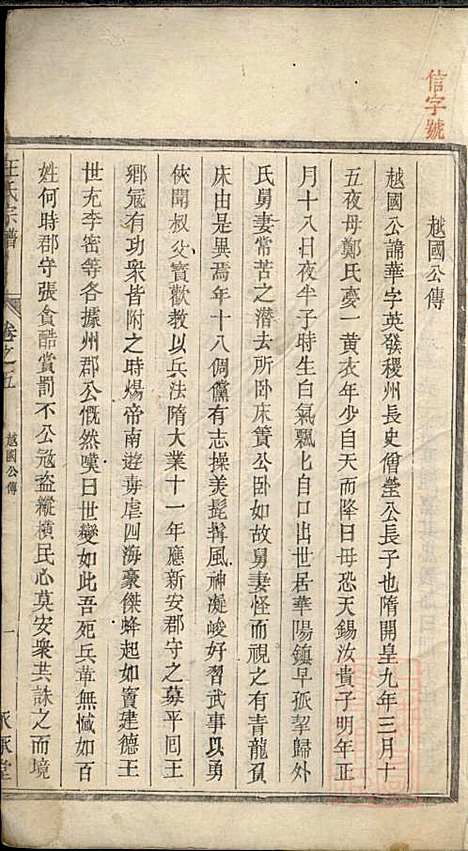 信字號
越國公傳
越國公諱華字英發稷州長史僧瑩公長子也隋開皇九年三月十
五夜母鄭氏夢一黃衣年少自天而降曰母恐天錫汝貴子明年正
月十八日夜半子時生白氣飄匕自口出世居華陽鎮早孤挈歸外
氏舅妻常苦之潛去所臥床簀公臥如故舅妻怪而視之有青龍負
床由是異焉年十八倜儻有志操美髭髯風神凝峻好習武事以勇
俠聞叔父寶歡教以兵法隋大業十一年應新安郡守之募平囘王
鄉冦有功衆皆附之時煬帝南遊毒虐四海豪傑蜂起如竇建德王
世充李密等各據州郡公慨然嘆曰世變如此吾死兵革無憾如百
姓何時郡守張貪酷賞罰不公冦盜縱橫民心莫安衆共誅之而境
汪氏宗譜
卷之五
越國公傳
一
承啟堂